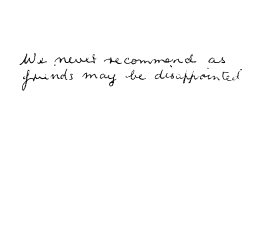 We never recommend as
friends may be disappointed